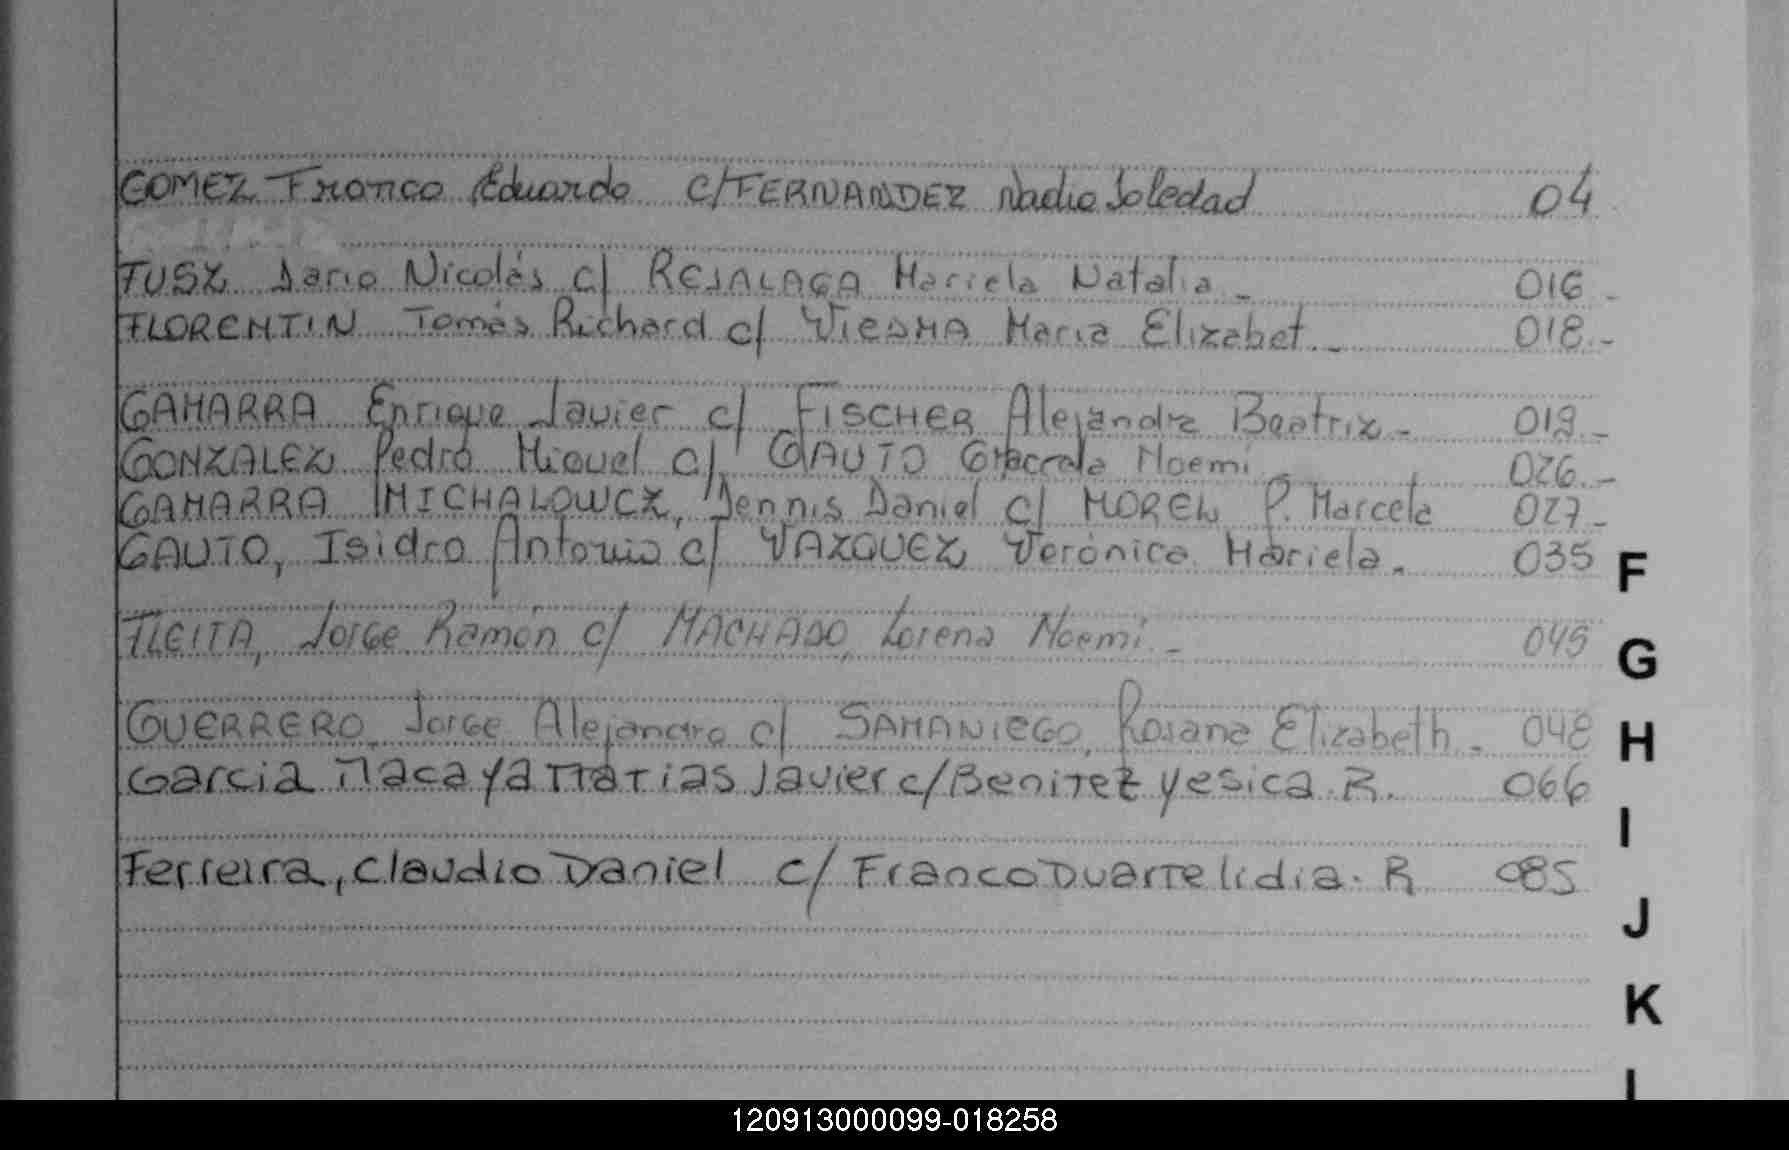 GOMEZ Franco Eduardo c/FERNANDEZ Nadia Soledad 04
FUSZ Dario Nicolás c/ RESALAGA Mariela Natalia - 016 -
FLORENTIN Tomás Richard c/ WIESMA Maria Elizabet - 018 -
GAMARRA Enrique Javier c/ FISCHER Alejandra Beatriz - 019 -
GONZALEZ Pedro Miguel c/ GAUTO Noemi 026 -
GAMARRA MICHALOWCZ, Dennis Daniel c/ MOREL P. Marcela 027 -
GAUTO, Isidro Antonio c/ VAZQUEZ Verónica Mariela. 035
FLEITA, Jorge Ramón c/ MACHADO, Lorena Noemi - 045
GUERRERO, Jorge Alejandro c/ SAMANIEGO, Rosana Elizabeth. 048
Garcia Macaya Matias Javier c/Benitez Yesica R. 066
Ferreira, Claudio Daniel c/ Franco Duarte Lidia. R 085
F
G
H
I
J
K
120913000099-018258